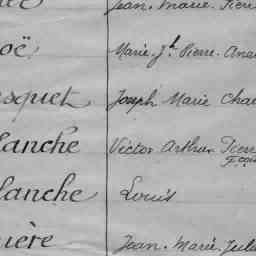 Jean. Marie. Pierr
oë Marie. Jh. Pierre. Ana
squet Joseph Marie Char
lanche Victor Arthur Pierr
Fçois
lanche Louis
ière Jean. Marie. Jule